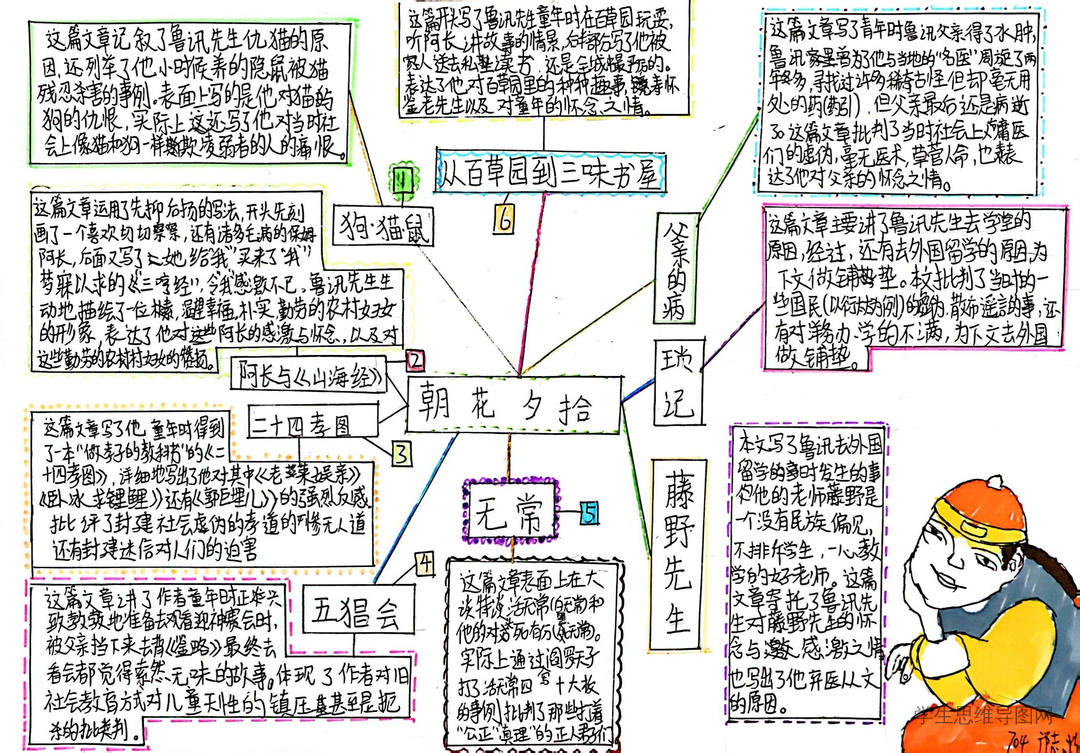 这篇文章记叙了鲁讯先生仇猫的原
因,还列举了他小时候养的隐鼠被猫
残忍杀害的事例。表面上写的是他对猫的
狗的仇恨,实际上这还写了他对当时社
会上像猫和狗一样欺凌弱者的人的痛恨。
1
狗·猫·鼠
这篇开头写了鲁讯先生童年时在百草园玩耍,
听阿长讲故事的情景,后部分写了他被
家人送去私塾读书,还是全城最严厉的。
表达了他对百草园里的种种趣事,
鉴老先生以及对童年的怀念之情。
从百草园到三味书屋
6
这篇文章写了青年时鲁讯父亲得了水肿,
鲁讯家里曾为他与当地的“名医”周旋了两
年多,寻找过许多稀奇古怪但却毫无用
处的药(药引),但父亲最后还是病逝
了。这篇文章批判了当时社会上庸医
们的虚伪,毫无医术,草菅人命,也表
达了他对父亲的怀念之情。
父亲的病
这篇文章运用了先抑后扬的写法,开头先刻
画了一个喜欢切切察察,还有诸多毛病的保姆
阿长,后面又写了她给我“买来了“我”
梦寐以求的《三哼经》,令我感激不已,鲁讯先生生
动地描绘了一位
朴实,勤劳的农村妇女
的形象,表达了他对这些阿长的感激与怀念,以及对
这些勤劳的农村妇女的赞扬。
2
阿长与《山海经》
这篇文章主要讲了鲁讯先生去学堂的
原因,经过,还有去外国留学的原因,为
下文做铺垫。本文批判了当时的一
些国民(以衍太太为例)的
散布谣言的事,还
有对洋务办学的不满,为下文去外国
做铺垫。
琐记
朝花夕拾
二十四孝图
3
这篇文章写了他童年时得到
了一本“做孝子的教科书”的《二
十四孝图》,详细地写出了他对其中《老莱娱亲》
《卧冰求鲤》还有《郭巨埋儿》的强烈反感
批评了封建社会虚伪的孝道的
无人道
还有封建迷信对人们的迫害
无常
5
这篇文章表面上在大
谈特谈活无常(白无常)和
他的对
死有分(黑无常)。
实际上通过阎罗天子
打了活无常四十大板
的事例批判了那些打着
“公正”“真理”的正人君子们
4
五猖会
这篇文章讲了作者童年时正兴头
致致勃地准备去观看迎神赛会时,
被父亲挡下来去背《鉴略》最终去
看会都觉得索然无味的故事。体现了作者对旧
社会教育方式对儿童天生的镇压甚至是扼
杀的批判。
藤野先生
本文写了鲁讯去外国
留学的
时发生的事
和他的老师藤野是
一个没有民族偏见,
不排斥学生,一心教
学的好老师。这篇
文章寄托了鲁讯先
生对藤野先生的怀
念与
感激之情
也写出了他弃医从文
的原因。
学生思维导图网
704